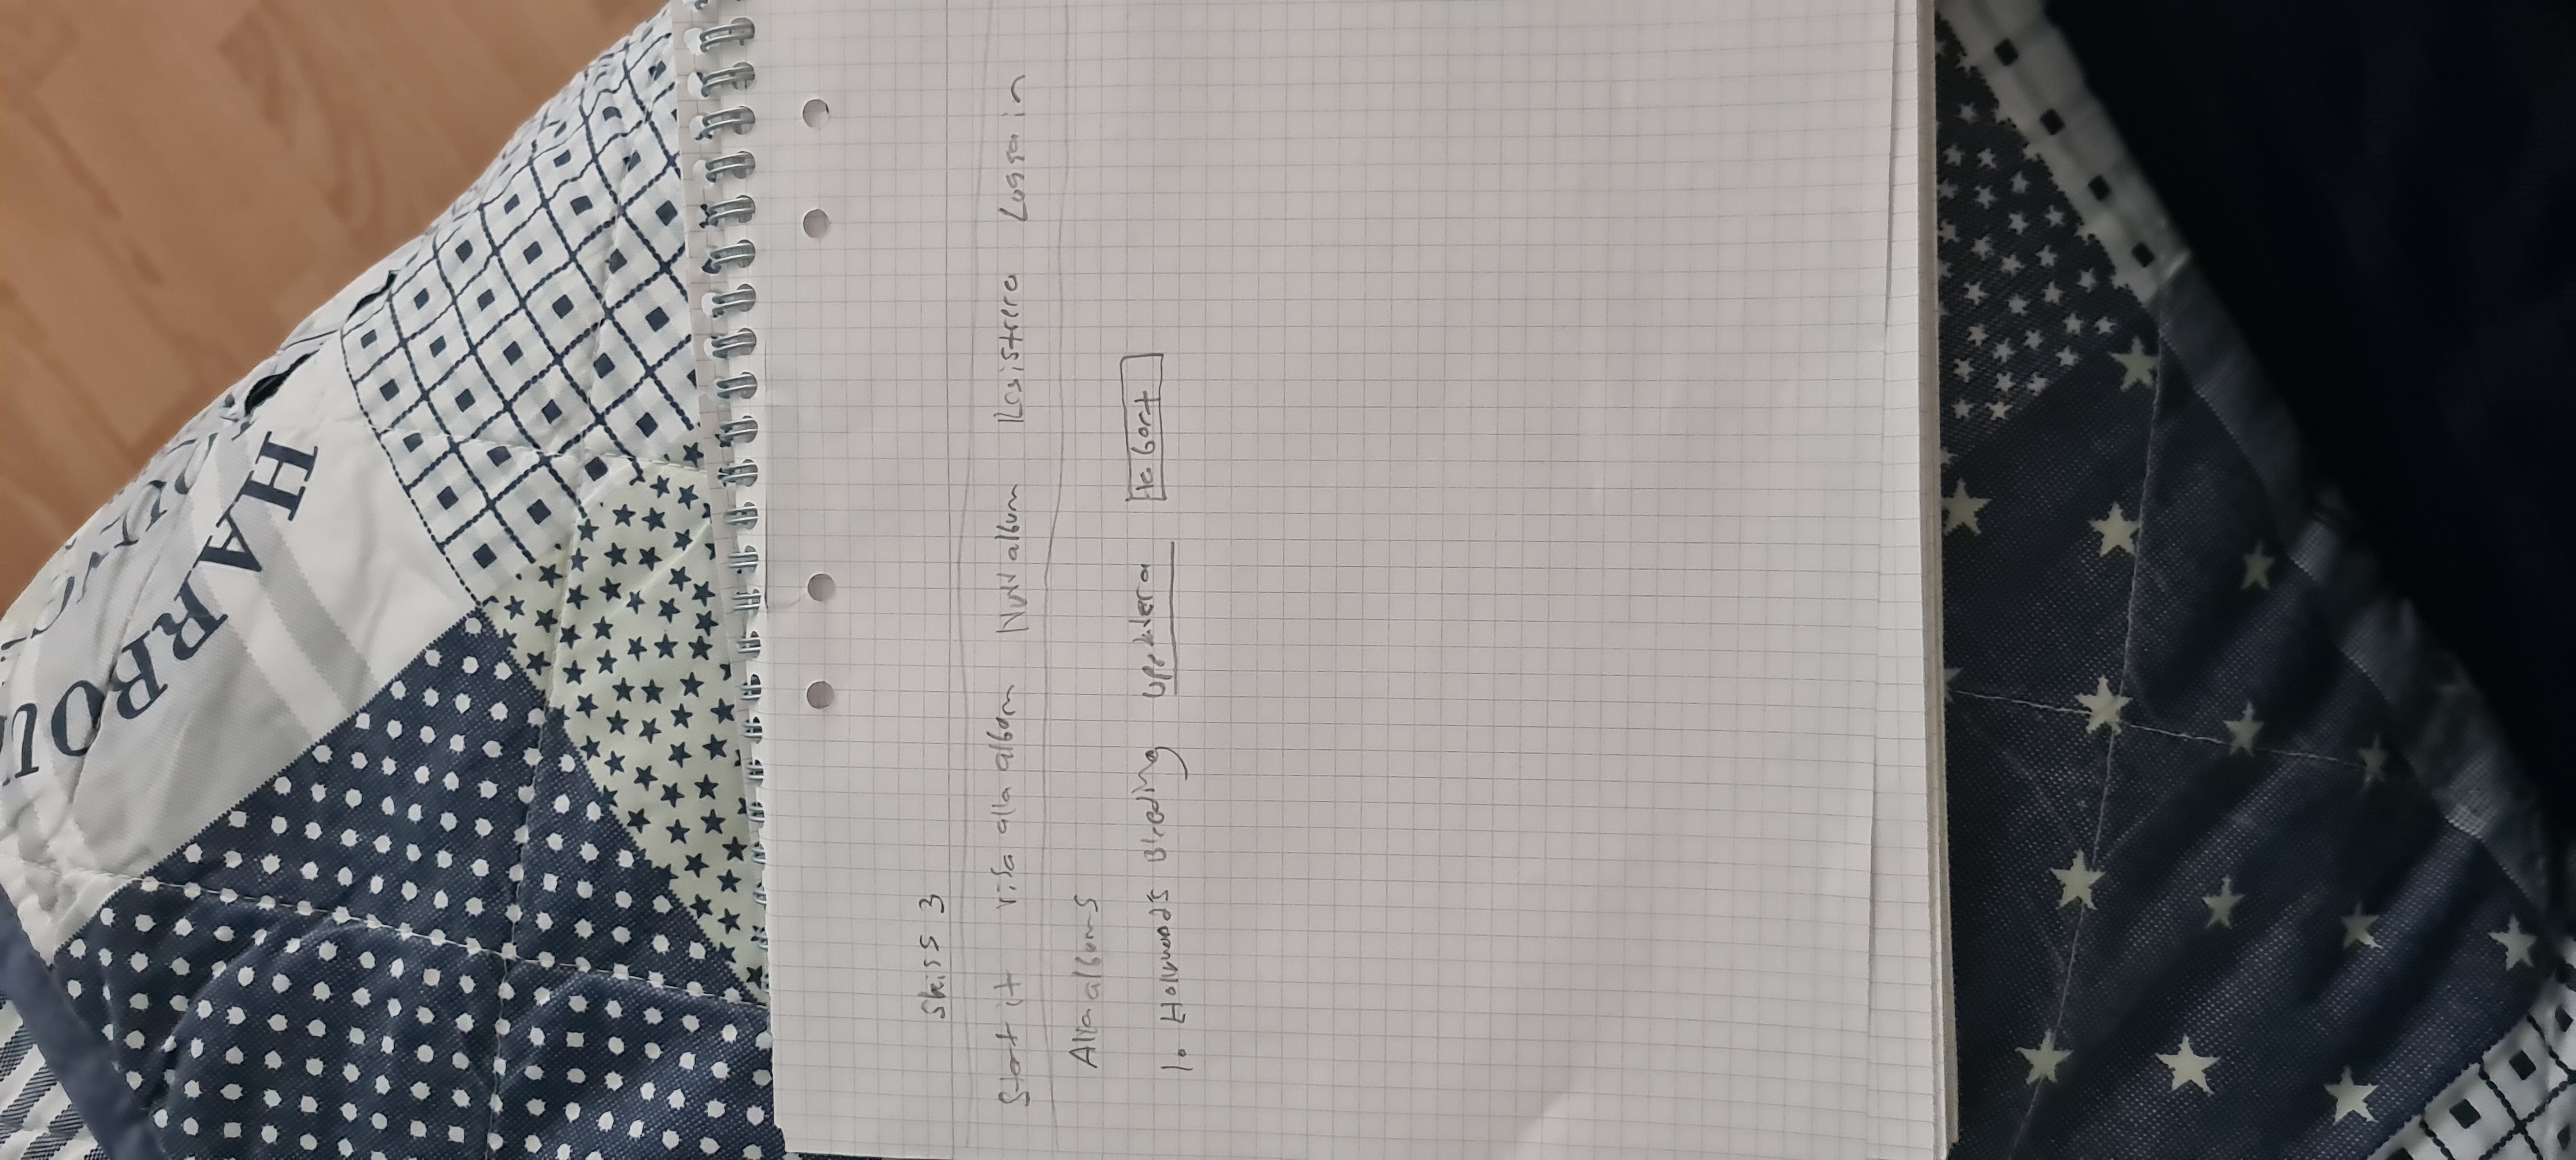 HARBOU
Skiss 3
Start it Visa alla album Nytt album Registrera Logga in
Alla albums
1. Hollywood's Bleeding Uppdatera Ta bort